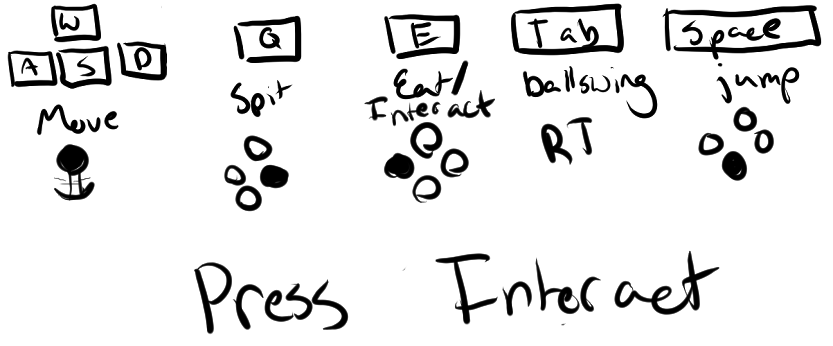 W
A S D
Move
Q
Spit
E
Eat/
Interact
Tab
ballswing
RT
Space
jump
Press Interact